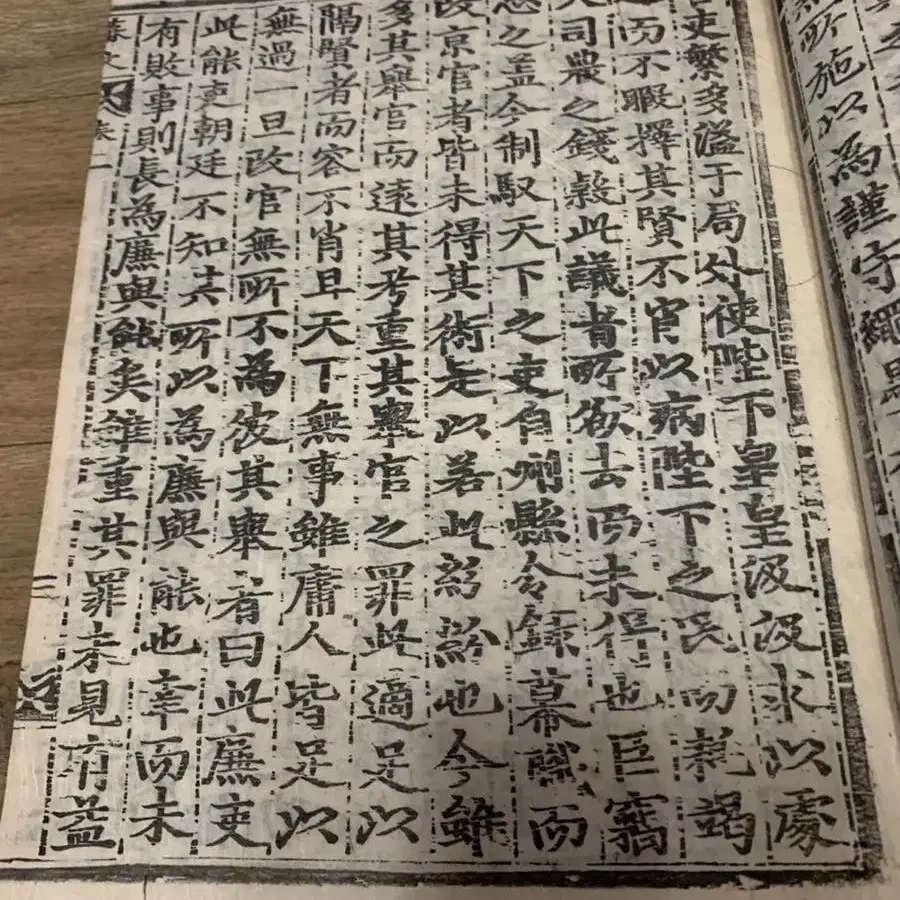 所施以為謹守繩
吏繁多溢于局外使陛下皇皇汲汲求以處
而不暇擇其賢不肖以病陛下之民而耗竭
司農之錢穀此議者所欲去而未得也臣竊
之蓋今制馭天下之吏自州縣令錄幕職而
改京官者皆未得其術是以若此紛紛也今雖
多其舉官而遠其考重其舉官之罪此適足以
隔賢者而容不肖且天下無事雖庸人皆足以
無過一旦改官無所不為彼其舉者曰此廉吏
此能吏朝廷不知其所以為廉與能也幸而未
有敗事則長為廉與能矣雖重其罪未見有益
二